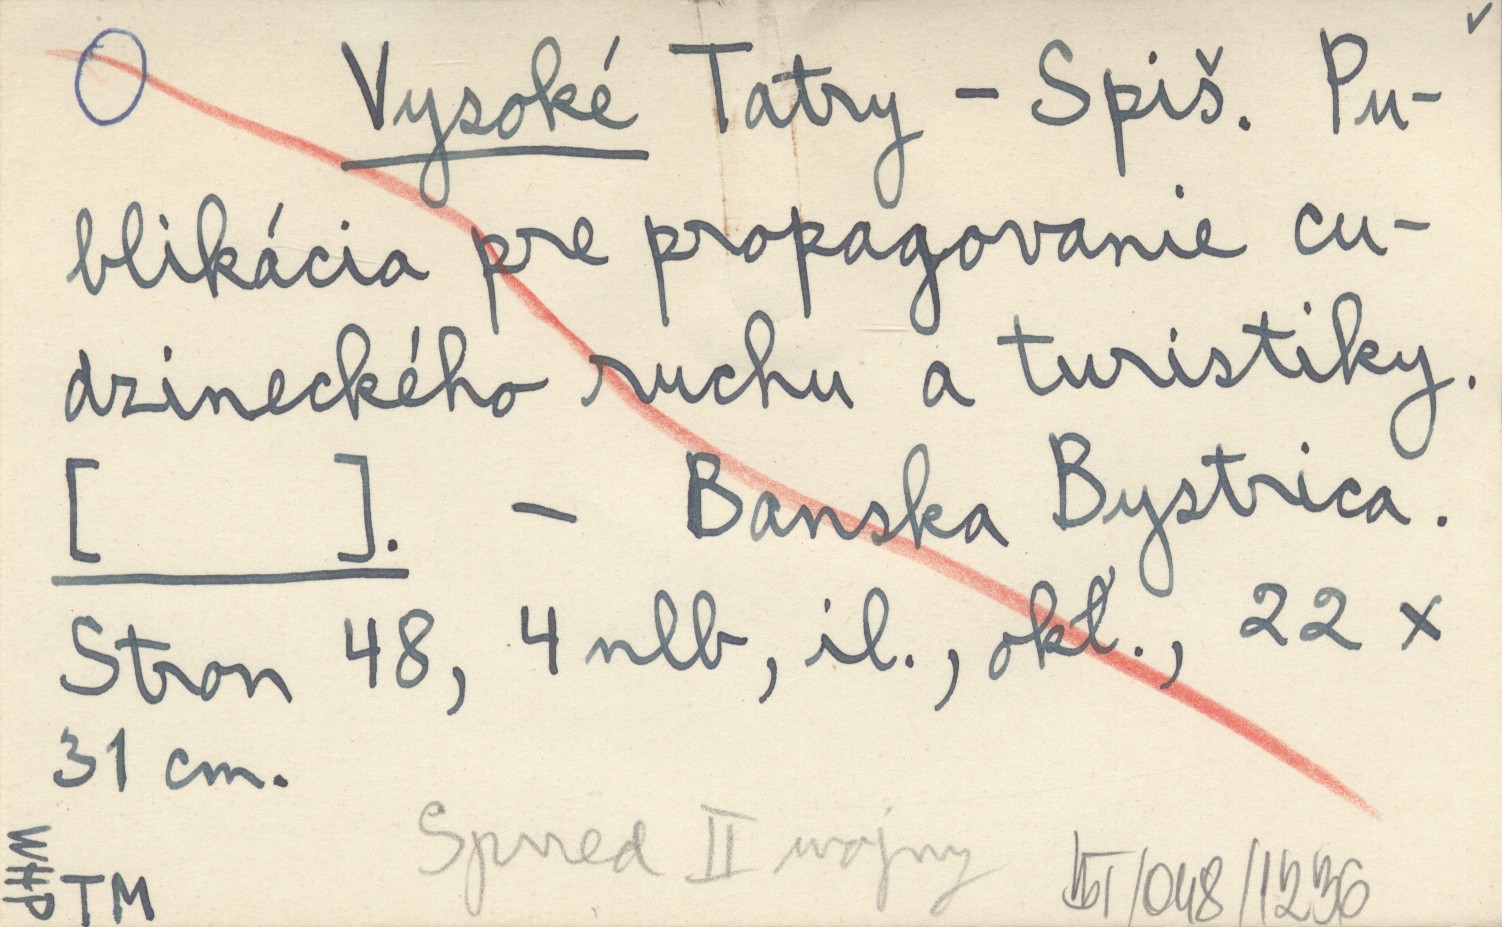 Vysoké Tatry – Spiš. Pu-
blikácia pre propagovanie cu-
dzineckého ruchu a turistiky.
[ ]. – Banska Bystrica.
Stron 48, 4 nlb, il., okł., 22 x
31 cm.
Sprzed II wojny
/048/1236
WHP
TM